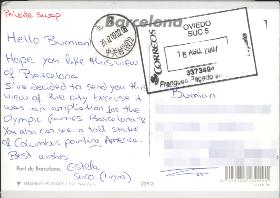 Private swap
Barcelona
Hello Bumian!
Hope you like this view
of Barcelona
I've decided to send you this
view of the city because it
was an ampliation for the
Olympic Games Barcelona 92
You also can see a tall statue
of Columbus pointing America.
Best wishes
Estela
Port de Barcelona.
CORREOS
OVIEDO
SUC 5
18 ABR. 2007
Franqueo Pagado en
Bumian